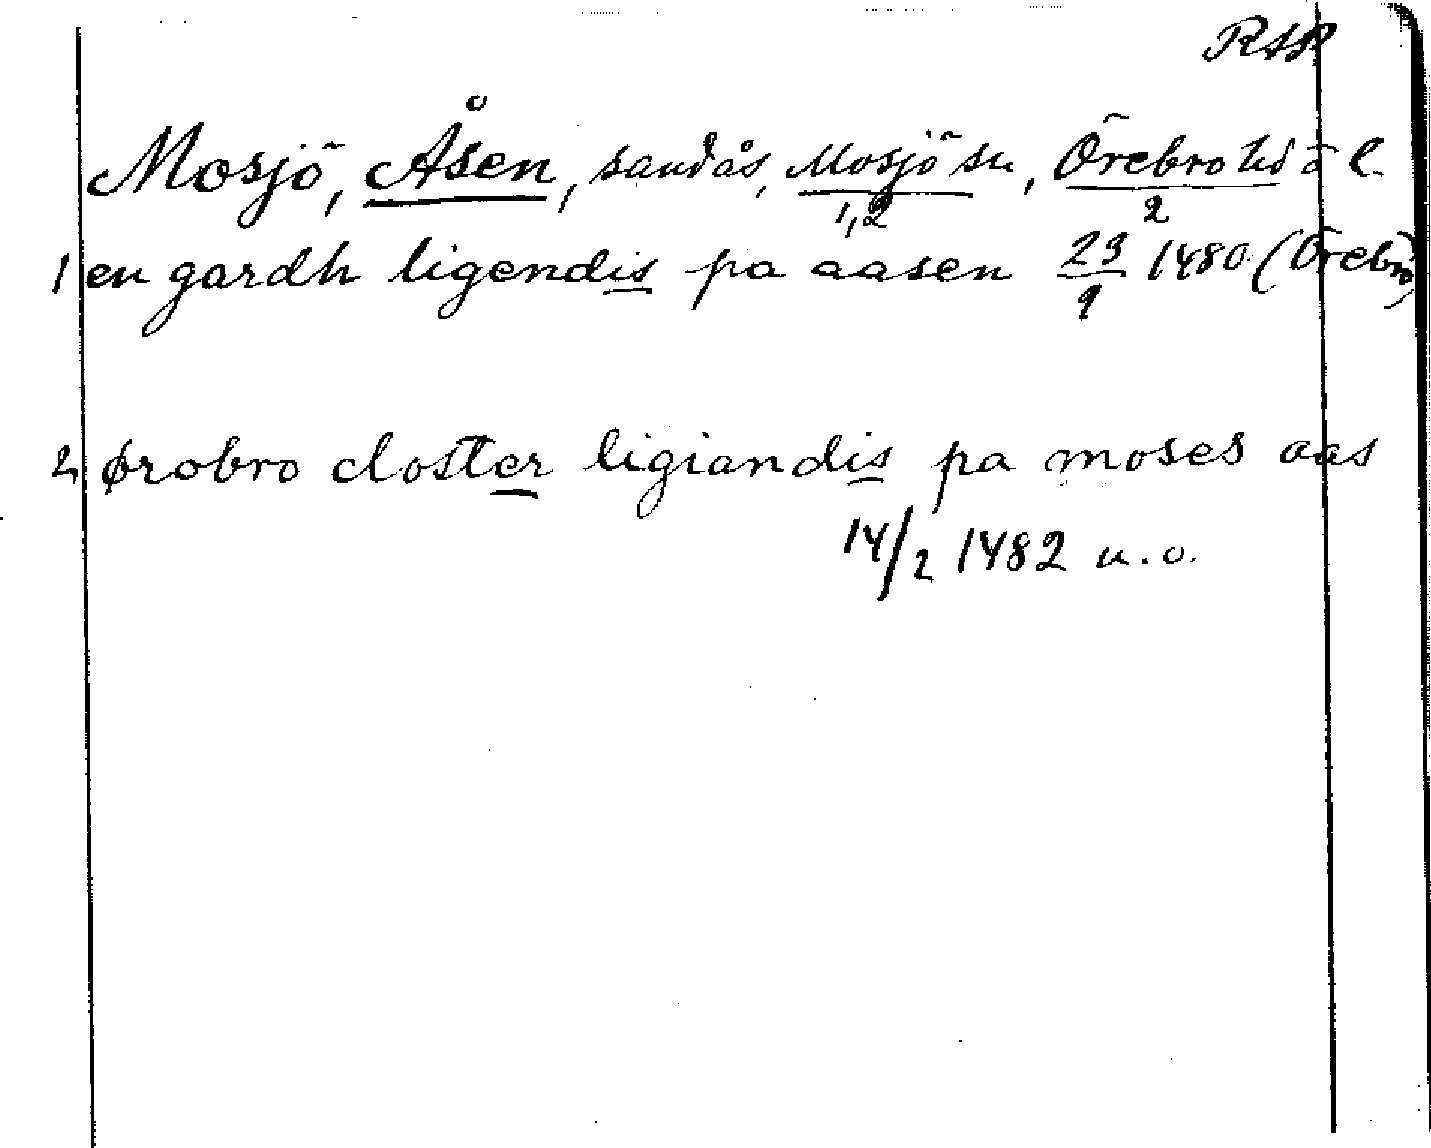 RAP
Mosjö, Åsen, sandås, Mosjö sn, Örebro hd o l
1,2 2
1 en gardh ligendis pa aasen 23/9 1480 (Örebro)
2 ørobro closter ligiandis pa moses aas
14/2 1482 u.o.